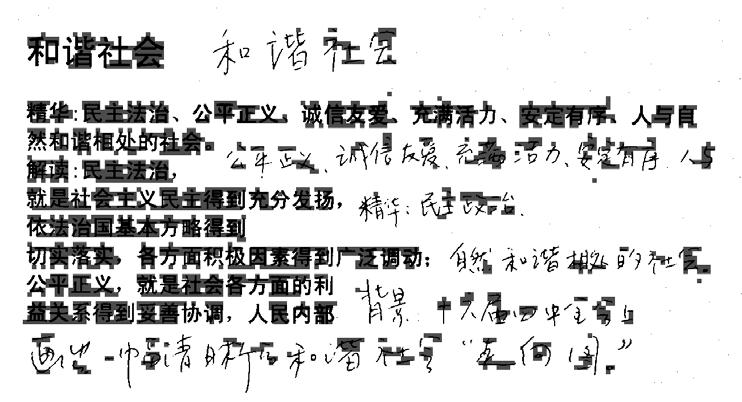 和谐社会 和谐社会
精华:民主法治、公平正义、诚信友爱、充满活力、安定有序、人与自
然和谐相处的社会。
公平正义、诚信友爱、充满活力、安定有序、人与
解读:民主法治,
就是社会主义民主得到充分发扬,
精华:民主政治.
依法治国基本方略得到
切实落实,各方面积极因素得到广泛调动;
自然和谐相处的社会.
公平正义,就是社会各方面的利
背景 十六届四中全会上
益关系得到妥善协调,人民内部
一 和谐社会